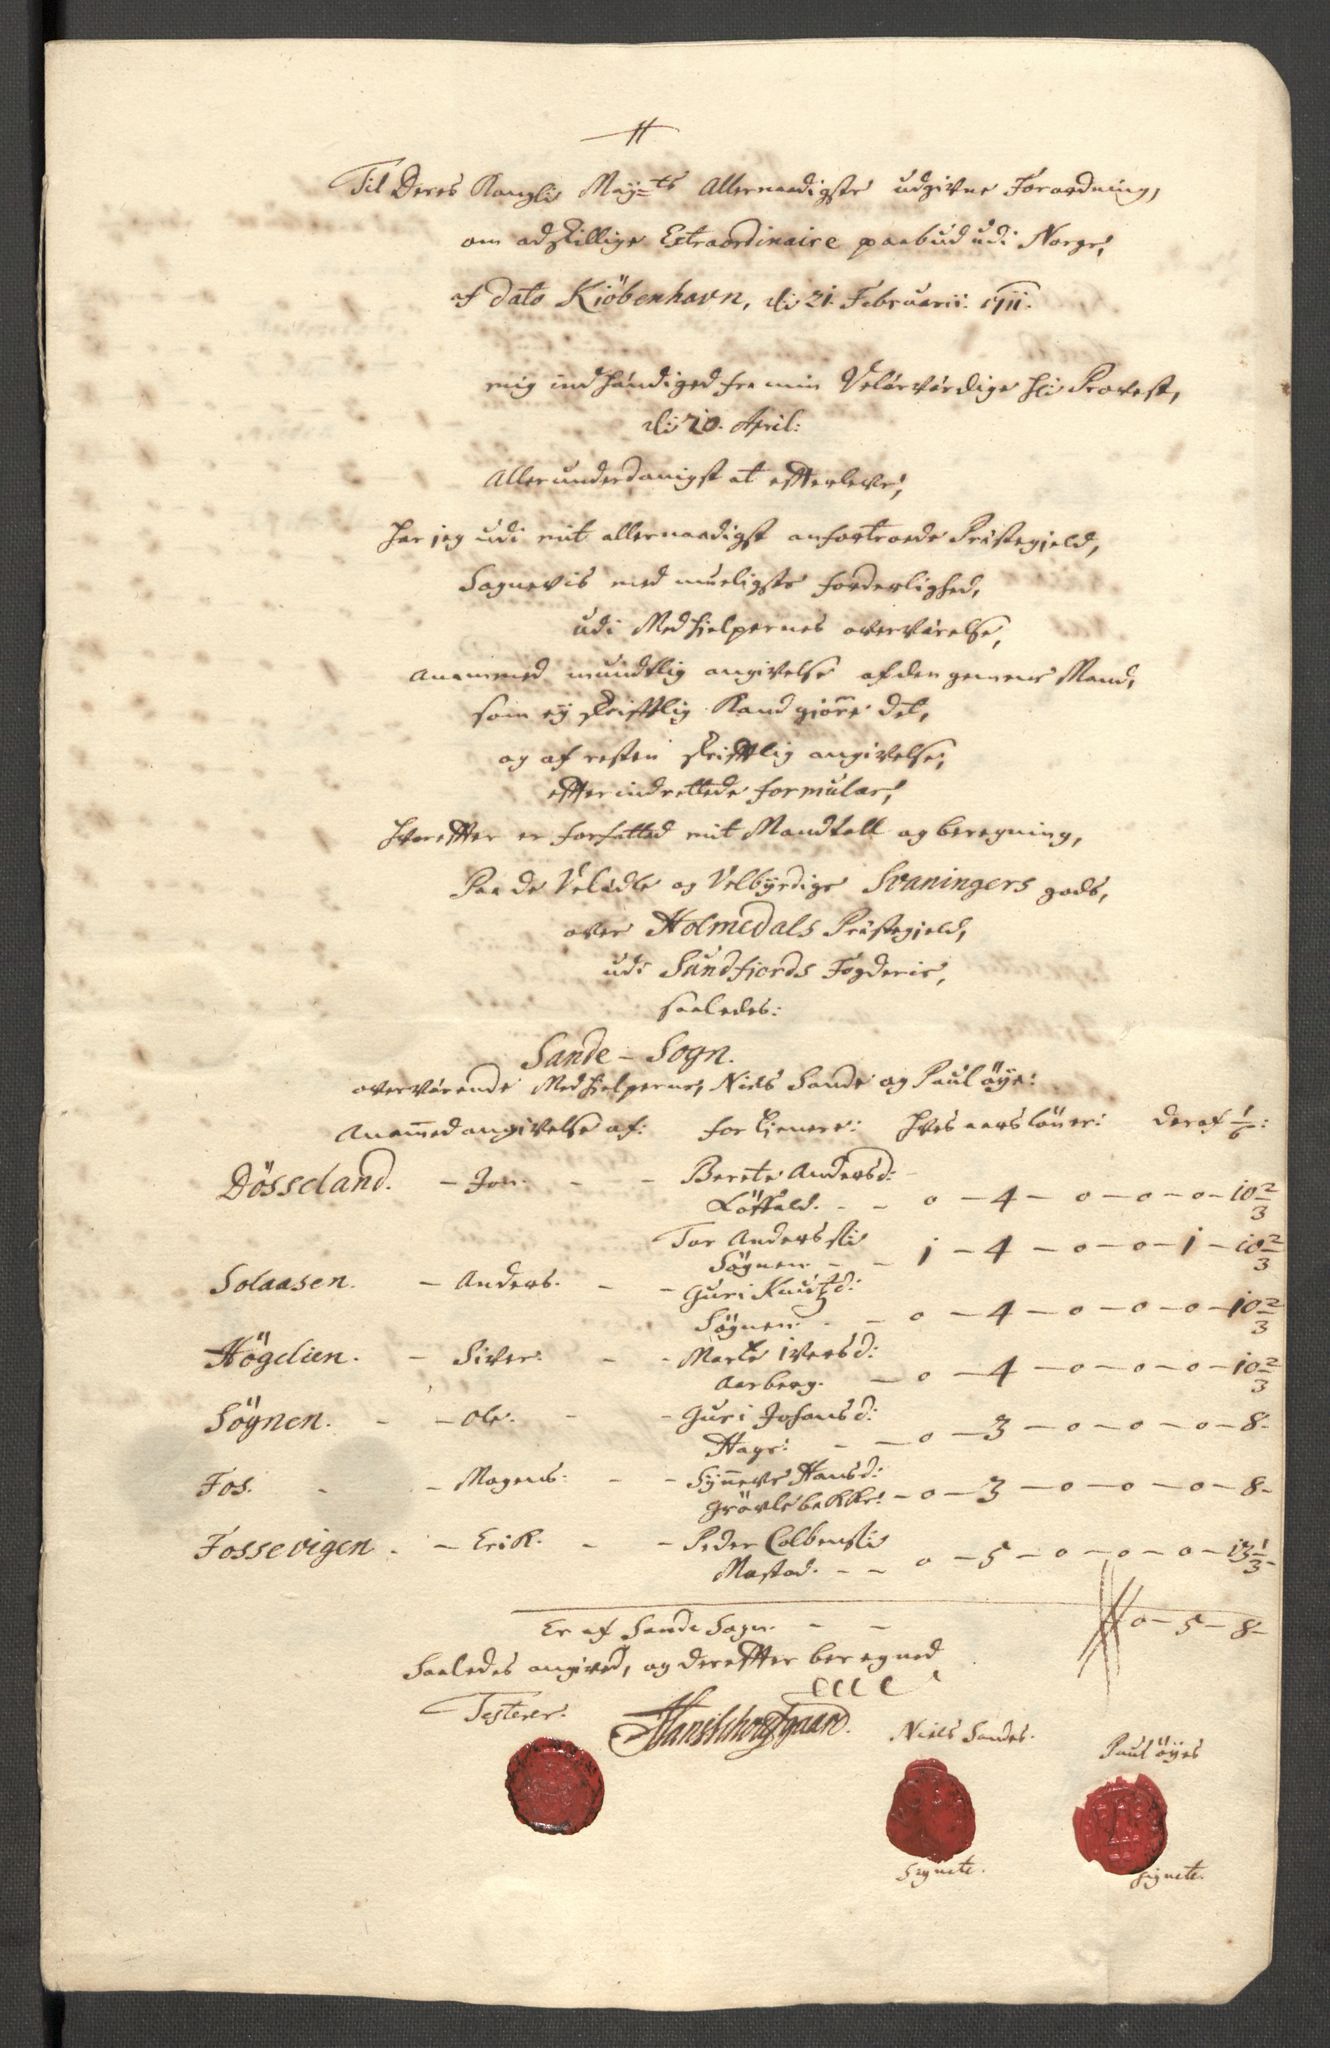 H
Til Deres Kongl: May:ts Allernaadigste udgivne Forordning,
om adskillige Extraordinaire paabud udi Norge,
af dato Kiöbenhavn, d: 21. Februarii: 1711.
mig indhändiged fra min Velärvärdige Hr: Provest,
d: 20. April:
Allerunderdanigst at efterleve,
har jeg udi mit allernaadigst anfortroede Pristegield,
Sognevis med mueligste forderlighed,
udi Medhielpernes overvärelse,
Anammed mundtlig angivelse af den gemene Mand,
som ey skrifftlig kand giöre det,
og af resten skrifftlig angivelse,
effter indrettede formular,
Hvoreffter er forfatted mit Mandtall og beregning,
Paa de Velädle og Velbyrdige Svaningers gods,
over Holmedals Pristegield,
udi Sundfiords Fogderie,
saaledes:
Sande - Sogn.
overvärende Medhielpere, Niels Sande og Paul öye:
Anammed angivelse af: for tienere: hves aarslöner: deraf 1/6:
Dösseland. - Jon. - - Berete Andersd:
Löffald. - - 0 - 4 - 0 - 0 - 0 - 10 2/3
Tor Anders
Sögnen. - - 1 - 4 - 0 - 0 - 1 - 10 2/3
Solaasen. - Anders. - - Guri Knutzd:
Sögnen. - - 0 - 4 - 0 - 0 - 0 - 10 2/3
Högelien. - Siver. - - Marte Iversd:
Aarberg. - 0 - 4 - 0 - 0 - 0 - 10 2/3
Sögnen. - - Ole. - - Guri Johansd:
Hage: - - 0 - 3 - 0 - 0 - 0 - 8 -
Fos. - - Mogens: - - Synneve Hansd:
Grövlebekke: - 0 - 3 - 0 - 0 - 0 - 8 -
Fossevigen. - Erik. - - Peder Colbens
Mastad. - - 0 - 5 - 0 - 0 - 0 - 13 1/3 -
Er af Sande Sogn. - - 0 - 5 - 8 -
Saaledes angived, og dereffter beregned
Testerer.
Niels Sandes.
Paul öyes
Signete.
Signete.